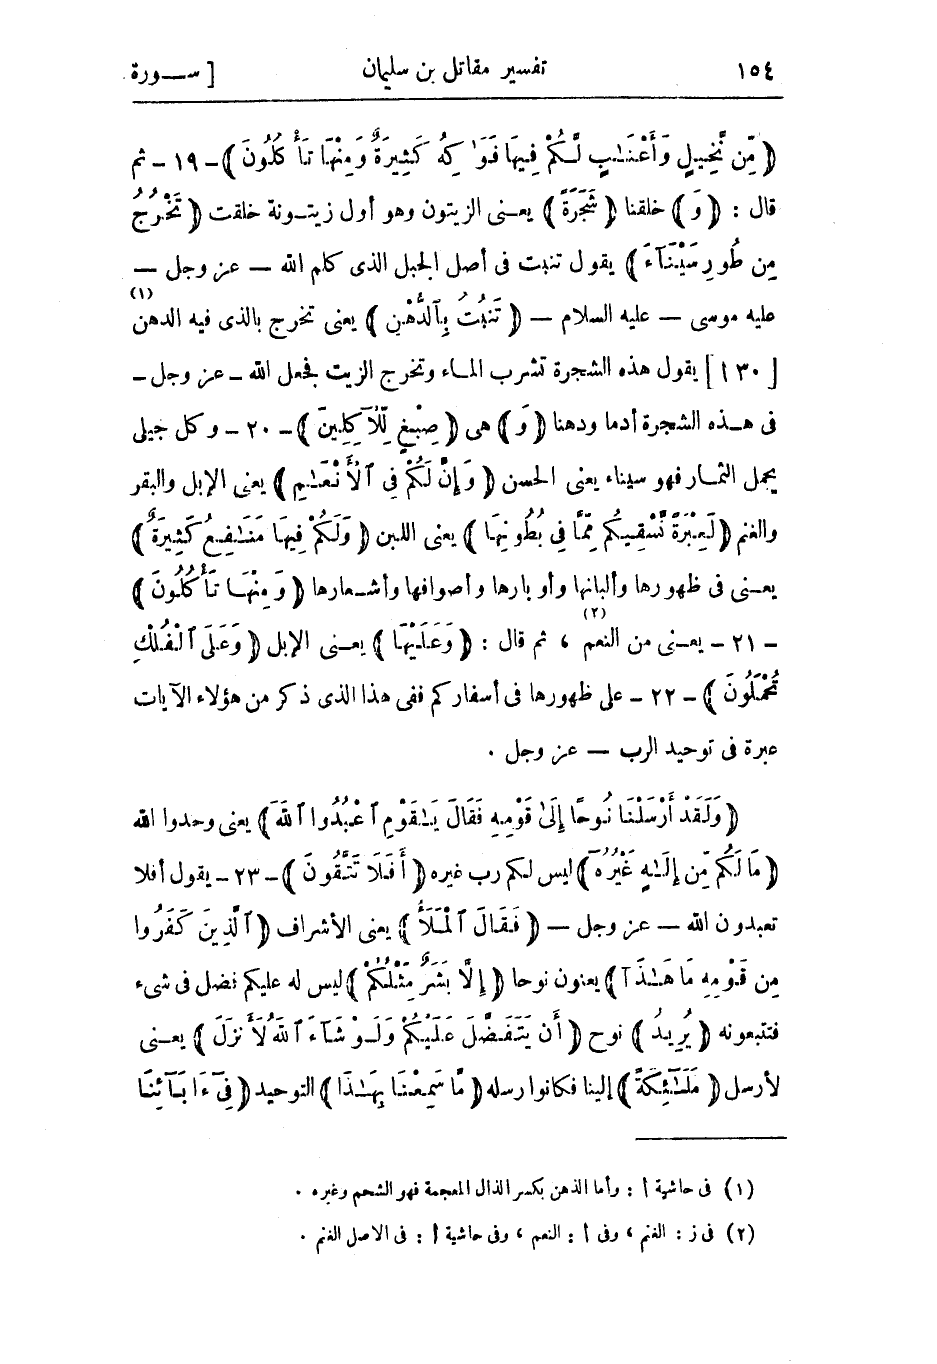 ١٥٤ تفسير مقاتل بن سليمان [ ســورة
﴿ مِّن نَّخِيلٍ وَأَعْنَـٰبٍ لَّكُمْ فِيهَا فَوَٰكِهُ كَثِيرَةٌ وَمِنْهَا تَأْكُلُونَ ﴾ – ١٩ – ثم
قال : ﴿ وَ ﴾ خلقنا ﴿ شَجَرَةً ﴾ يعنى الزيتون وهو أول زيتونة خلقت ﴿ تَخْرُجُ
مِن طُورِ سَيْنَآءَ ﴾ يقول تنبت فى أصل الجبل الذى كلم الله — عز وجل —
عليه موسى — عليه السلام — ﴿ تَنبُتُ بِٱلدُّهْنِ ﴾ يعنى تخرج بالذى فيه الدهن (١)
[ ١٣٠ ] يقول هذه الشجرة تشرب الماء وتخرج الزيت فجعل الله – عز وجل –
فى هذه الشجرة أدما ودهنا ﴿ وَ ﴾ هى ﴿ صِبْغٍ لِّلْآكِلِينَ ﴾ – ٢٠ – وكل جبلى
يحمل الثمار فهو سيناء يعنى الحسن ﴿ وَإِنَّ لَكُمْ فِى ٱلْأَنْعَـٰمِ ﴾ يعنى الإبل والبقر
والغنم ﴿ لَعِبْرَةً نُّسْقِيكُم مِّمَّا فِى بُطُونِهَا ﴾ يعنى اللبن ﴿ وَلَكُمْ فِيهَا مَنَـٰفِعُ كَثِيرَةٌ ﴾
يعنى فى ظهورها وألبانها وأوبارها وأصوافها وأشعارها ﴿ وَمِنْهَا تَأْكُلُونَ ﴾
– ٢١ – يعنى من النعم (٢) ، ثم قال : ﴿ وَعَلَيْهَا ﴾ يعنى الإبل ﴿ وَعَلَى ٱلْفُلْكِ
تُحْمَلُونَ ﴾ – ٢٢ – على ظهورها فى أسفاركم ففى هذا الذى ذكر من هؤلاء الآيات
عبرة فى توحيد الرب — عز وجل .
﴿ وَلَقَدْ أَرْسَلْنَا نُوحًا إِلَىٰ قَوْمِهِ فَقَالَ يَـٰقَوْمِ ٱعْبُدُوا ٱللَّهَ ﴾ يعنى وحدوا الله
﴿ مَا لَكُم مِّن إِلَـٰهٍ غَيْرُهُ ﴾ ليس لكم رب غيره ﴿ أَفَلَا تَتَّقُونَ ﴾ – ٢٣ – يقول أفلا
تعبدون الله — عز وجل — ﴿ فَقَالَ ٱلْمَلَأُ ﴾ يعنى الأشراف ﴿ ٱلَّذِينَ كَفَرُوا
مِن قَوْمِهِ مَا هَـٰذَآ ﴾ يعنون نوحا ﴿ إِلَّا بَشَرٌ مِّثْلُكُمْ ﴾ ليس له عليكم فضل فى شىء
فتتبعونه ﴿ يُرِيدُ ﴾ نوح ﴿ أَن يَتَفَضَّلَ عَلَيْكُمْ وَلَوْ شَآءَ ٱللَّهُ لَأَنزَلَ ﴾ يعنى
لأرسل ﴿ مَلَـٰٓئِكَةً ﴾ إلينا فكانوا رسله ﴿ مَّا سَمِعْنَا بِهَـٰذَا ﴾ التوحيد ﴿ فِىٓ ءَابَآئِنَا
(١) فى حاشية أ : وأما الذهن بكسر الذال المعجمة فهو الشحم وغيره .
(٢) فى ز : الغنم ، وفى أ : النعم ، وفى حاشية أ : فى الأصل الغنم .